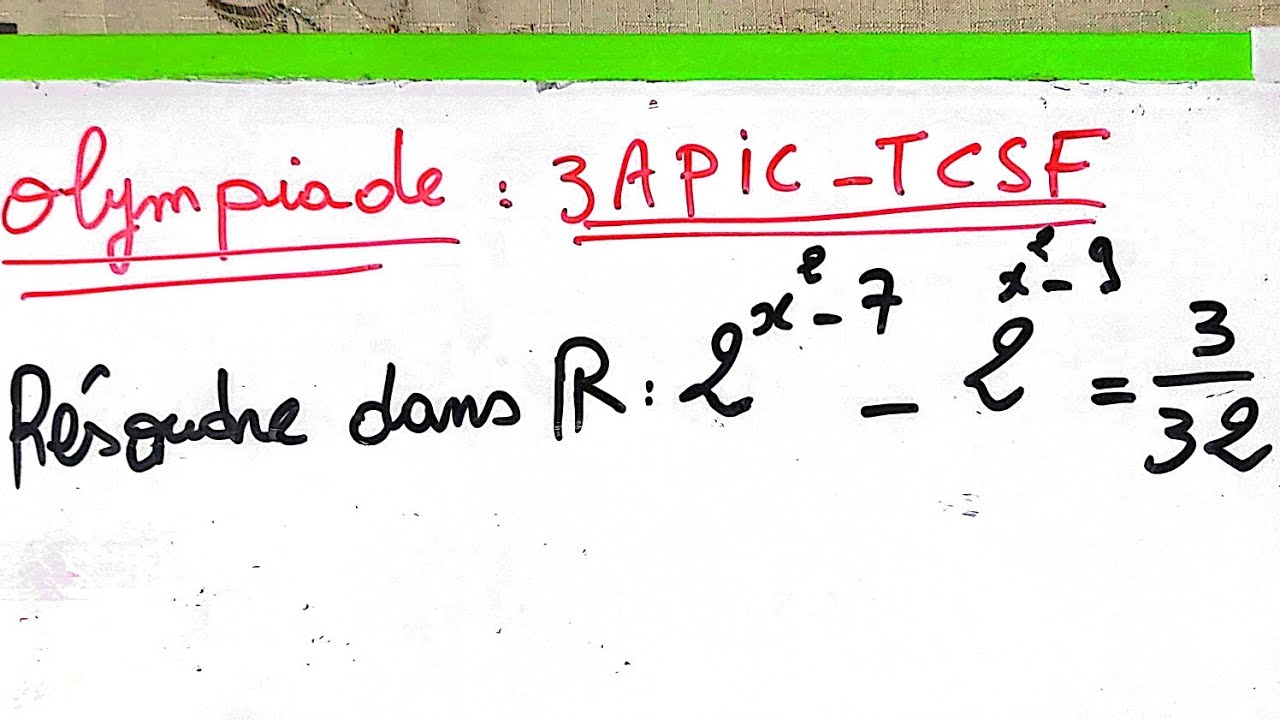 Olympiade : 3APiC - TCSF
Résoudre dans ℝ : 2^{x²-7} - 2^{x²-9} = 3/32